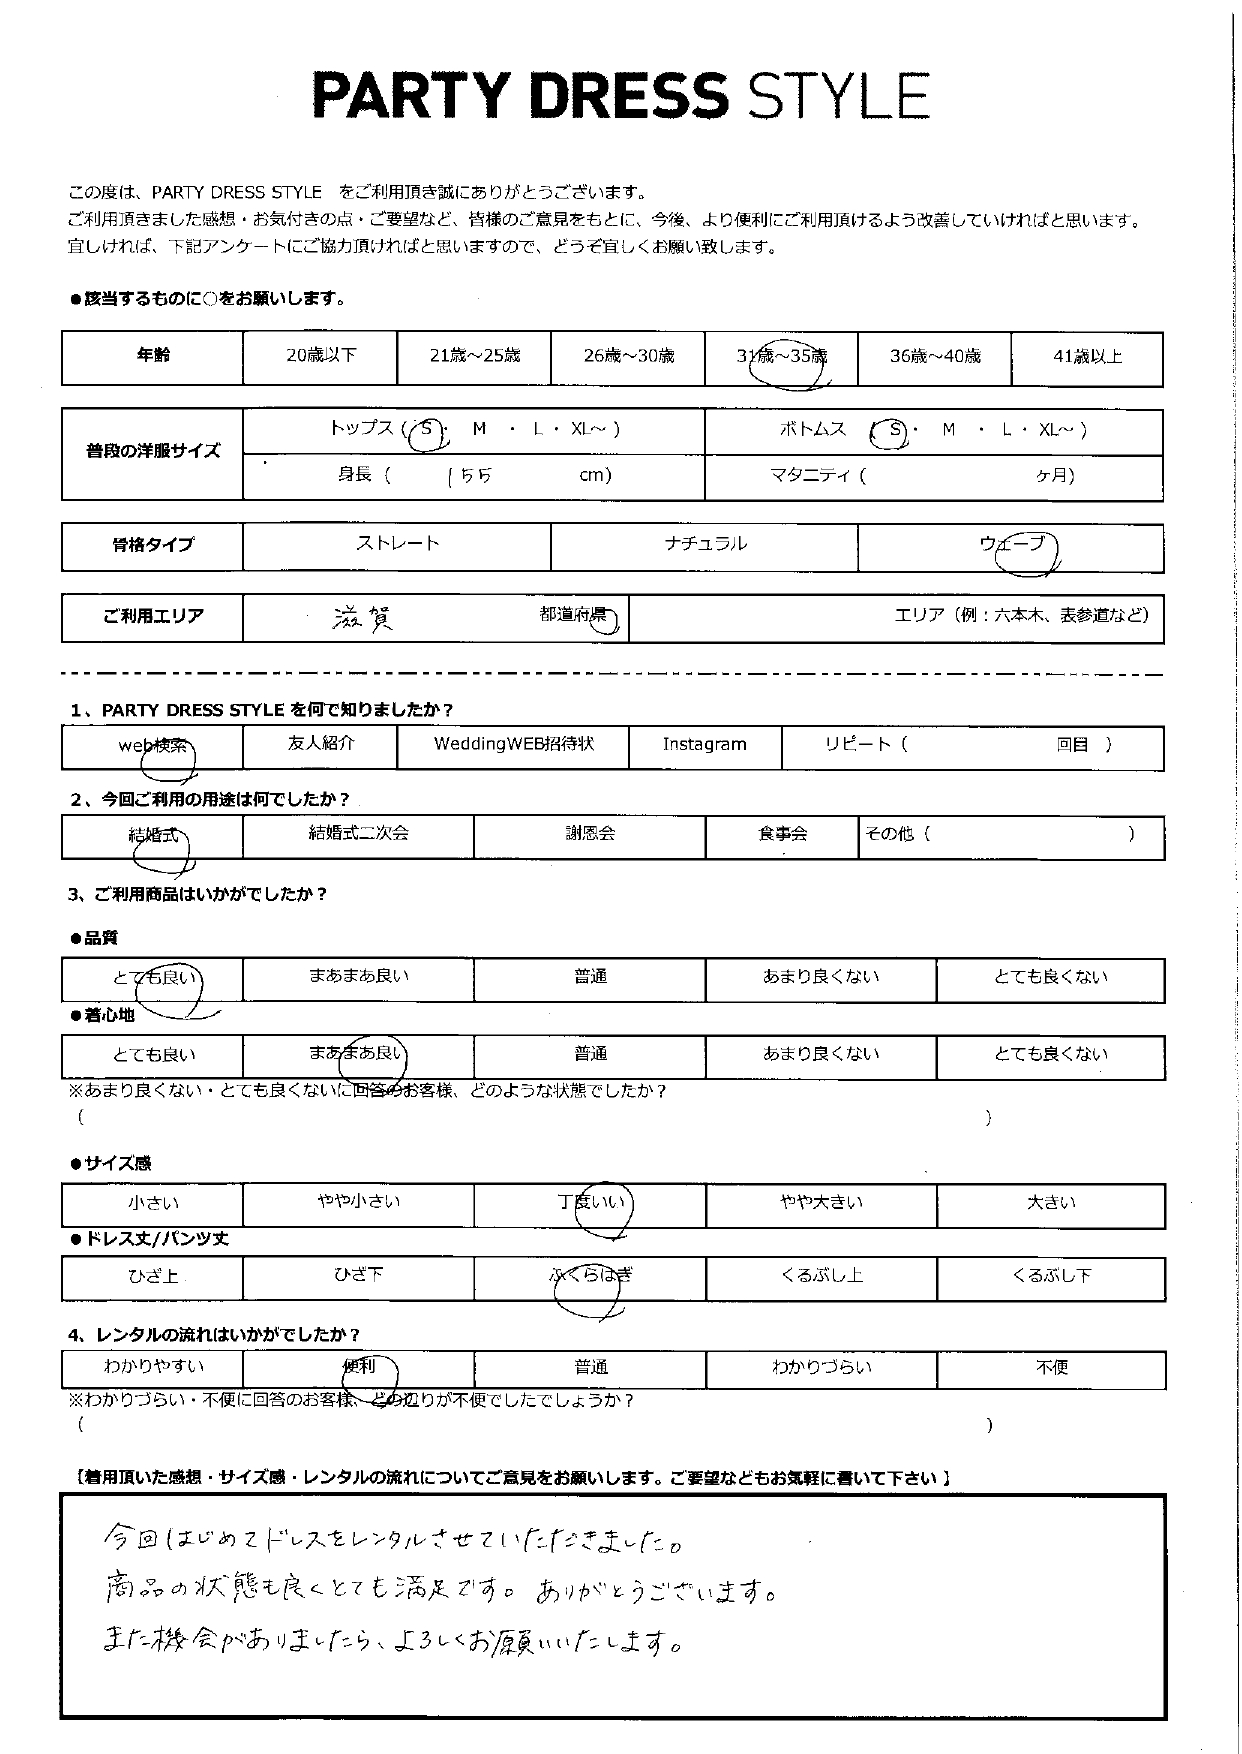 PARTY DRESS STYLE
この度は、PARTY DRESS STYLE をご利用頂き誠にありがとうございます。
ご利用頂きました感想・お気付きの点・ご要望など、皆様のご意見をもとに、今後、より便利にご利用頂けるよう改善していければと思います。
宜しければ、下記アンケートにご協力頂ければと思いますので、どうぞ宜しくお願い致します。
●該当するものに○をお願いします。
年齢 20歳以下 21歳～25歳 26歳～30歳 31歳～35歳 36歳～40歳 41歳以上
普段の洋服サイズ
トップス（ S ・ M ・ L ・ XL～ ） ボトムス （ S ・ M ・ L ・ XL～ ）
身長（ 155 cm） マタニティ（ ヶ月）
骨格タイプ ストレート ナチュラル ウェーブ
ご利用エリア 滋賀 都道府県 エリア（例：六本木、表参道など）
1、PARTY DRESS STYLE を何で知りましたか？
web検索 友人紹介 WeddingWEB招待状 Instagram リピート（ 回目 ）
2、今回ご利用の用途は何でしたか？
結婚式 結婚式二次会 謝恩会 食事会 その他（ ）
3、ご利用商品はいかがでしたか？
●品質
とても良い まあまあ良い 普通 あまり良くない とても良くない
●着心地
とても良い まあまあ良い 普通 あまり良くない とても良くない
※あまり良くない・とても良くないに回答のお客様、どのような状態でしたか？
（ ）
●サイズ感
小さい やや小さい 丁度いい やや大きい 大きい
●ドレス丈/パンツ丈
ひざ上 ひざ下 ふくらはぎ くるぶし上 くるぶし下
4、レンタルの流れはいかがでしたか？
わかりやすい 便利 普通 わかりづらい 不便
※わかりづらい・不便に回答のお客様、どの辺りが不便でしたでしょうか？
（ ）
【着用頂いた感想・サイズ感・レンタルの流れについてご意見をお願いします。ご要望などもお気軽に書いて下さい】
今回はじめてドレスをレンタルさせていただきました。
商品の状態も良くとても満足です。ありがとうございます。
また機会がありましたら、よろしくお願いいたします。